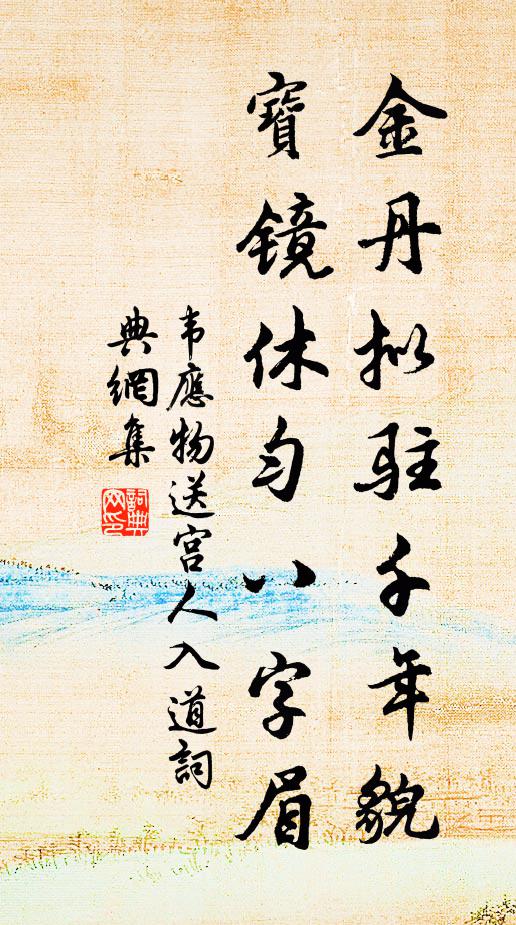 金丹拟駐千年貌
寶鏡休匀八字眉
韦應物送宫人入道詞
典網集
詞典网印